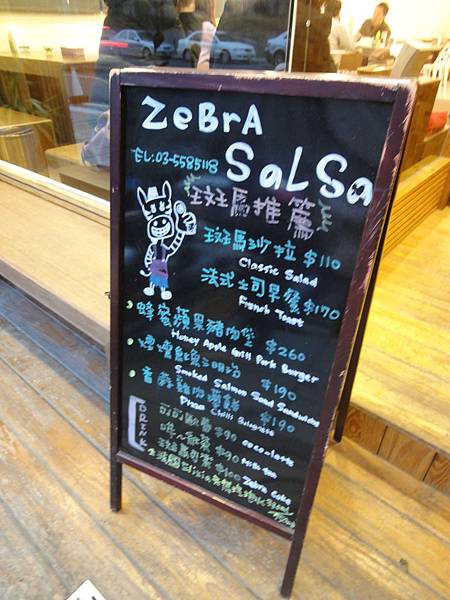 ZeBrA
SaLSa
TEL:03-5585118
斑馬推薦
斑馬沙拉 $110
Classic Salad
法式土司早餐 $170
French Toast
蜂蜜蘋果豬肉堡 $260
Honey Apple Grill Pork Burger
煙燻鮭魚三明治 $190
Smoked Salmon Sand Sandwiches
香蒜雞肉薄餅 $190
Pizza
DRINK
可可歐蕾 $90 cocolatte
$90 Milk Tea
斑馬可樂 $100 Zebra Coke